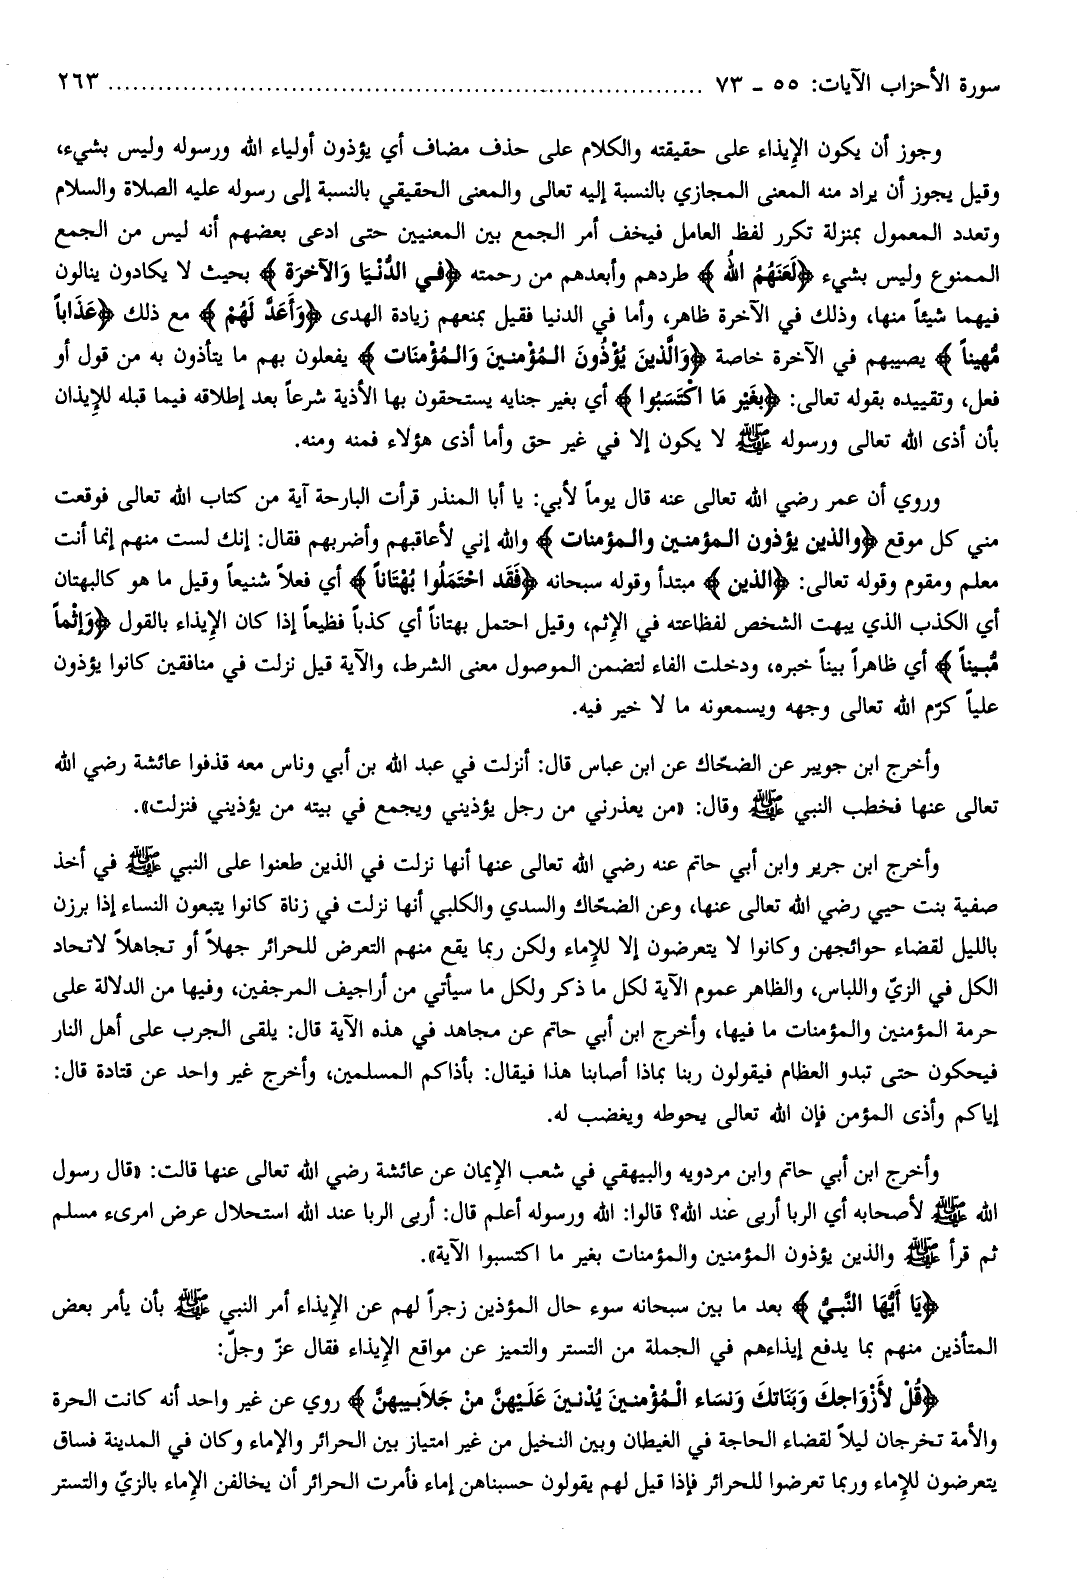 سورة الأحزاب الآيات: ٥٥ ـ ٧٣ ........................................................................ ٢٦٣
وجوز أن يكون الإيذاء على حقيقته والكلام على حذف مضاف أي يؤذون أولياء الله ورسوله وليس بشيء،
وقيل يجوز أن يراد منه المعنى المجازي بالنسبة إليه تعالى والمعنى الحقيقي بالنسبة إلى رسوله عليه الصلاة والسلام
وتعدد المعمول بمنزلة تكرر لفظ العامل فيخف أمر الجمع بين المعنيين حتى ادعى بعضهم أنه ليس من الجمع
الممنوع وليس بشيء ﴿لَعَنَهُمُ اللهُ﴾ طردهم وأبعدهم من رحمته ﴿في الدُّنْيَا وَالآخرَة﴾ بحيث لا يكادون ينالون
فيهما شيئاً منها، وذلك في الآخرة ظاهر، وأما في الدنيا فقيل بمنعهم زيادة الهدى ﴿وَأَعَدَّ لَهُمْ﴾ مع ذلك ﴿عَذَاباً
مُّهيناً﴾ يصيبهم في الآخرة خاصة ﴿وَالَّذينَ يُؤْذُونَ المُؤْمنينَ وَالمُؤْمنَات﴾ يفعلون بهم ما يتأذون به من قول أو
فعل، وتقييده بقوله تعالى: ﴿بغَيْر مَا اكْتَسَبُوا﴾ أي بغير جنايه يستحقون بها الأذية شرعاً بعد إطلاقه فيما قبله للإيذان
بأن أذى الله تعالى ورسوله ﷺ لا يكون إلا في غير حق وأما أذى هؤلاء فمنه ومنه.
وروي أن عمر رضي الله تعالى عنه قال يوماً لأبي: يا أبا المنذر قرأت البارحة آية من كتاب الله تعالى فوقعت
مني كل موقع ﴿والذين يؤذون المؤمنين والمؤمنات﴾ والله إني لأعاقبهم وأضربهم فقال: إنك لست منهم إنما أنت
معلم ومقوم وقوله تعالى: ﴿الذين﴾ مبتدأ وقوله سبحانه ﴿فَقَد احْتَمَلُوا بُهْتَاناً﴾ أي فعلاً شنيعاً وقيل ما هو كالبهتان
أي الكذب الذي يبهت الشخص لفظاعته في الإثم، وقيل احتمل بهتاناً أي كذباً فظيعاً إذا كان الإيذاء بالقول ﴿وَإثْماً
مُّبيناً﴾ أي ظاهراً بيناً خبره، ودخلت الفاء لتضمن الموصول معنى الشرط، والآية قيل نزلت في منافقين كانوا يؤذون
علياً كرّم الله تعالى وجهه ويسمعونه ما لا خير فيه.
وأخرج ابن جويبر عن الضحّاك عن ابن عباس قال: أنزلت في عبد الله بن أبي وناس معه قذفوا عائشة رضي الله
تعالى عنها فخطب النبي ﷺ وقال: «من يعذرني من رجل يؤذيني ويجمع في بيته من يؤذيني فنزلت».
وأخرج ابن جرير وابن أبي حاتم عنه رضي الله تعالى عنها أنها نزلت في الذين طعنوا على النبي ﷺ في أخذ
صفية بنت حيي رضي الله تعالى عنها، وعن الضحّاك والسدي والكلبي أنها نزلت في زناة كانوا يتبعون النساء إذا برزن
بالليل لقضاء حوائجهن وكانوا لا يتعرضون إلا للإماء ولكن ربما يقع منهم التعرض للحرائر جهلاً أو تجاهلاً لاتحاد
الكل في الزيّ واللباس، والظاهر عموم الآية لكل ما ذكر ولكل ما سيأتي من أراجيف المرجفين، وفيها من الدلالة على
حرمة المؤمنين والمؤمنات ما فيها، وأخرج ابن أبي حاتم عن مجاهد في هذه الآية قال: يلقى الجرب على أهل النار
فيحكون حتى تبدو العظام فيقولون ربنا بماذا أصابنا هذا فيقال: بأذاكم المسلمين، وأخرج غير واحد عن قتادة قال:
إياكم وأذى المؤمن فإن الله تعالى يحوطه ويغضب له.
وأخرج ابن أبي حاتم وابن مردويه والبيهقي في شعب الإيمان عن عائشة رضي الله تعالى عنها قالت: «قال رسول
الله ﷺ لأصحابه أي الربا أربى عند الله؟ قالوا: الله ورسوله أعلم قال: أربى الربا عند الله استحلال عرض امرىء مسلم
ثم قرأ ﷺ والذين يؤذون المؤمنين والمؤمنات بغير ما اكتسبوا الآية».
﴿يَا أَيُّهَا النَّبيُّ﴾ بعد ما بين سبحانه سوء حال المؤذين زجراً لهم عن الإيذاء أمر النبي ﷺ بأن يأمر بعض
المتأذين منهم بما يدفع إيذاءهم في الجملة من التستر والتميز عن مواقع الإيذاء فقال عزّ وجلّ:
﴿قُلْ لأَزْوَاجكَ وَبَنَاتكَ وَنسَاء الْمُؤْمنينَ يُدْنينَ عَلَيْهنَّ منْ جَلاَبيبهنَّ﴾ روي عن غير واحد أنه كانت الحرة
والأمة تخرجان ليلاً لقضاء الحاجة في الغيطان وبين النخيل من غير امتياز بين الحرائر والإماء وكان في المدينة فساق
يتعرضون للإماء وربما تعرضوا للحرائر فإذا قيل لهم يقولون حسبناهن إماء فأمرت الحرائر أن يخالفن الإماء بالزيّ والتستر